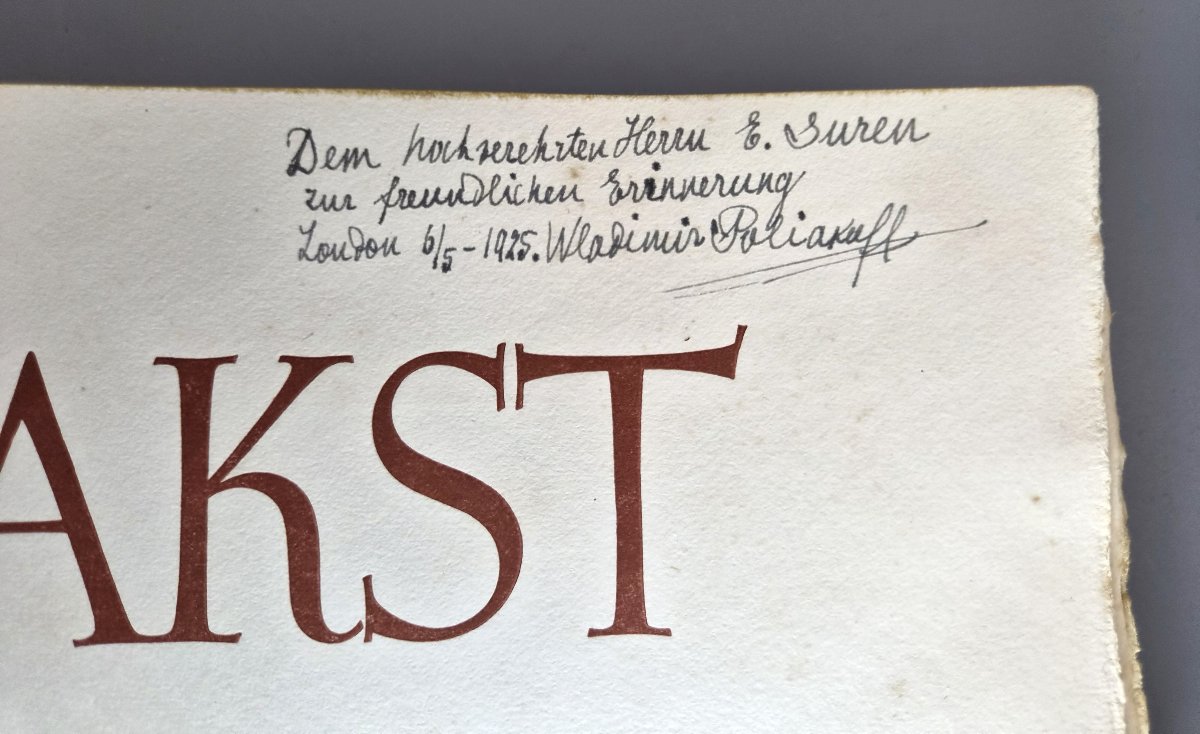 Dem hochverehrten Herrn E. Suren
zur freundlichen Erinnerung
London 6/5-1925. Wladimir Poliakoff
AKST